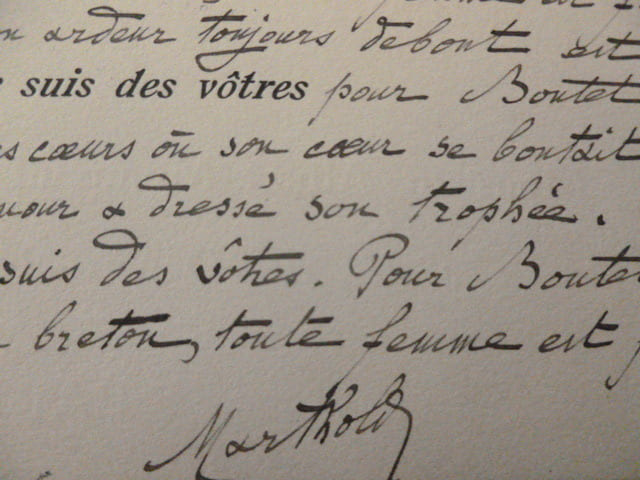 ardeur toujours debout est
suis des vôtres pour Boutet
cœurs où son cœur se boutait
a dressé son trophée.
suis des vôtres. Pour Boutet
breton, toute femme est
Marthold